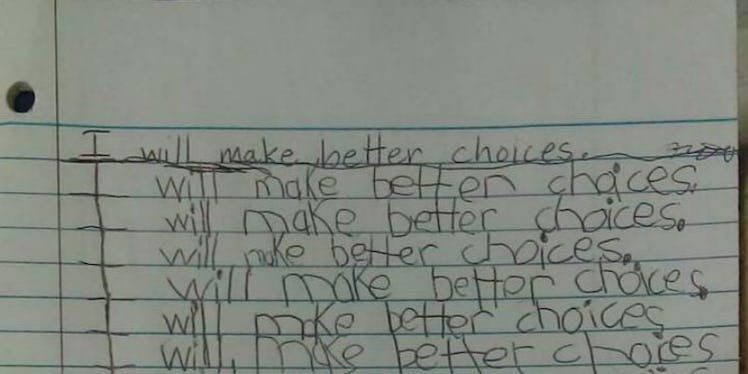 I will make better choices.
I will make better choices.
I will make better choices.
I will make better choices.
I will make better choices.
I will make better choices
I will, make better choies